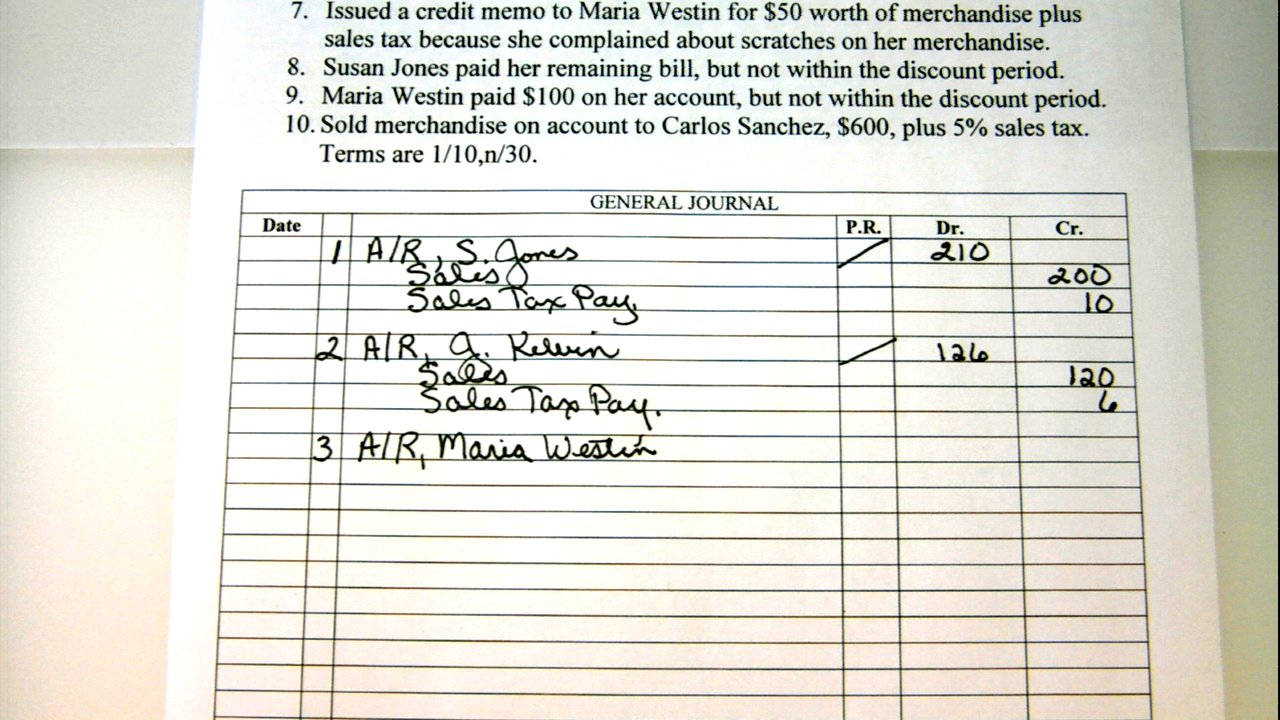 7. Issued a credit memo to Maria Westin for $50 worth of merchandise plus
sales tax because she complained about scratches on her merchandise.
8. Susan Jones paid her remaining bill, but not within the discount period.
9. Maria Westin paid $100 on her account, but not within the discount period.
10. Sold merchandise on account to Carlos Sanchez, $600, plus 5% sales tax.
Terms are 1/10,n/30.
GENERAL JOURNAL
Date P.R. Dr. Cr.
1 A/R, S. Jones 210
Sales 200
Sales Tax Pay. 10
2 A/R, J. Kelvin 126
Sales 120
Sales Tax Pay. 6
3 A/R, Maria Westin